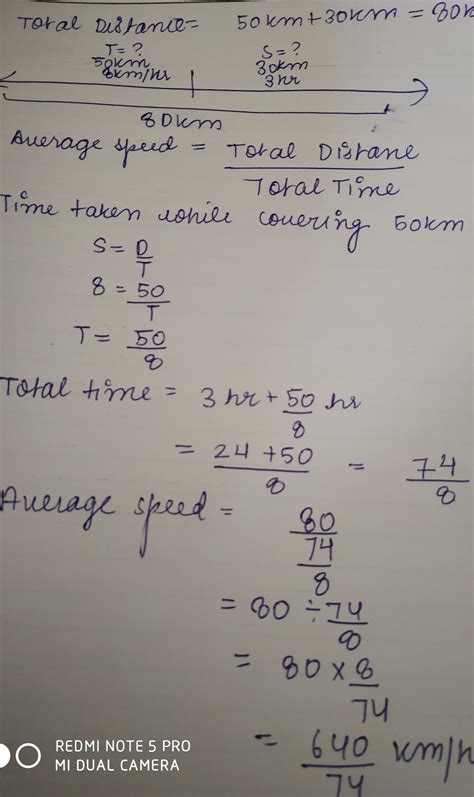 Total Distance= 50km+30km = 80k
T= ? S= ?
50km 30km
8km/hr 3hr
80km
Average speed = Total Distane
Total Time
Time taken while covering 50km
S= D
T
8 = 50
T
T= 50
8
Total time = 3 hr + 50 hr
8
= 24 +50 = 74
8 8
Average speed = 80
74
8
= 80 ÷ 74
8
= 80 × 8
74
= 640 km/h
74
REDMI NOTE 5 PRO
MI DUAL CAMERA